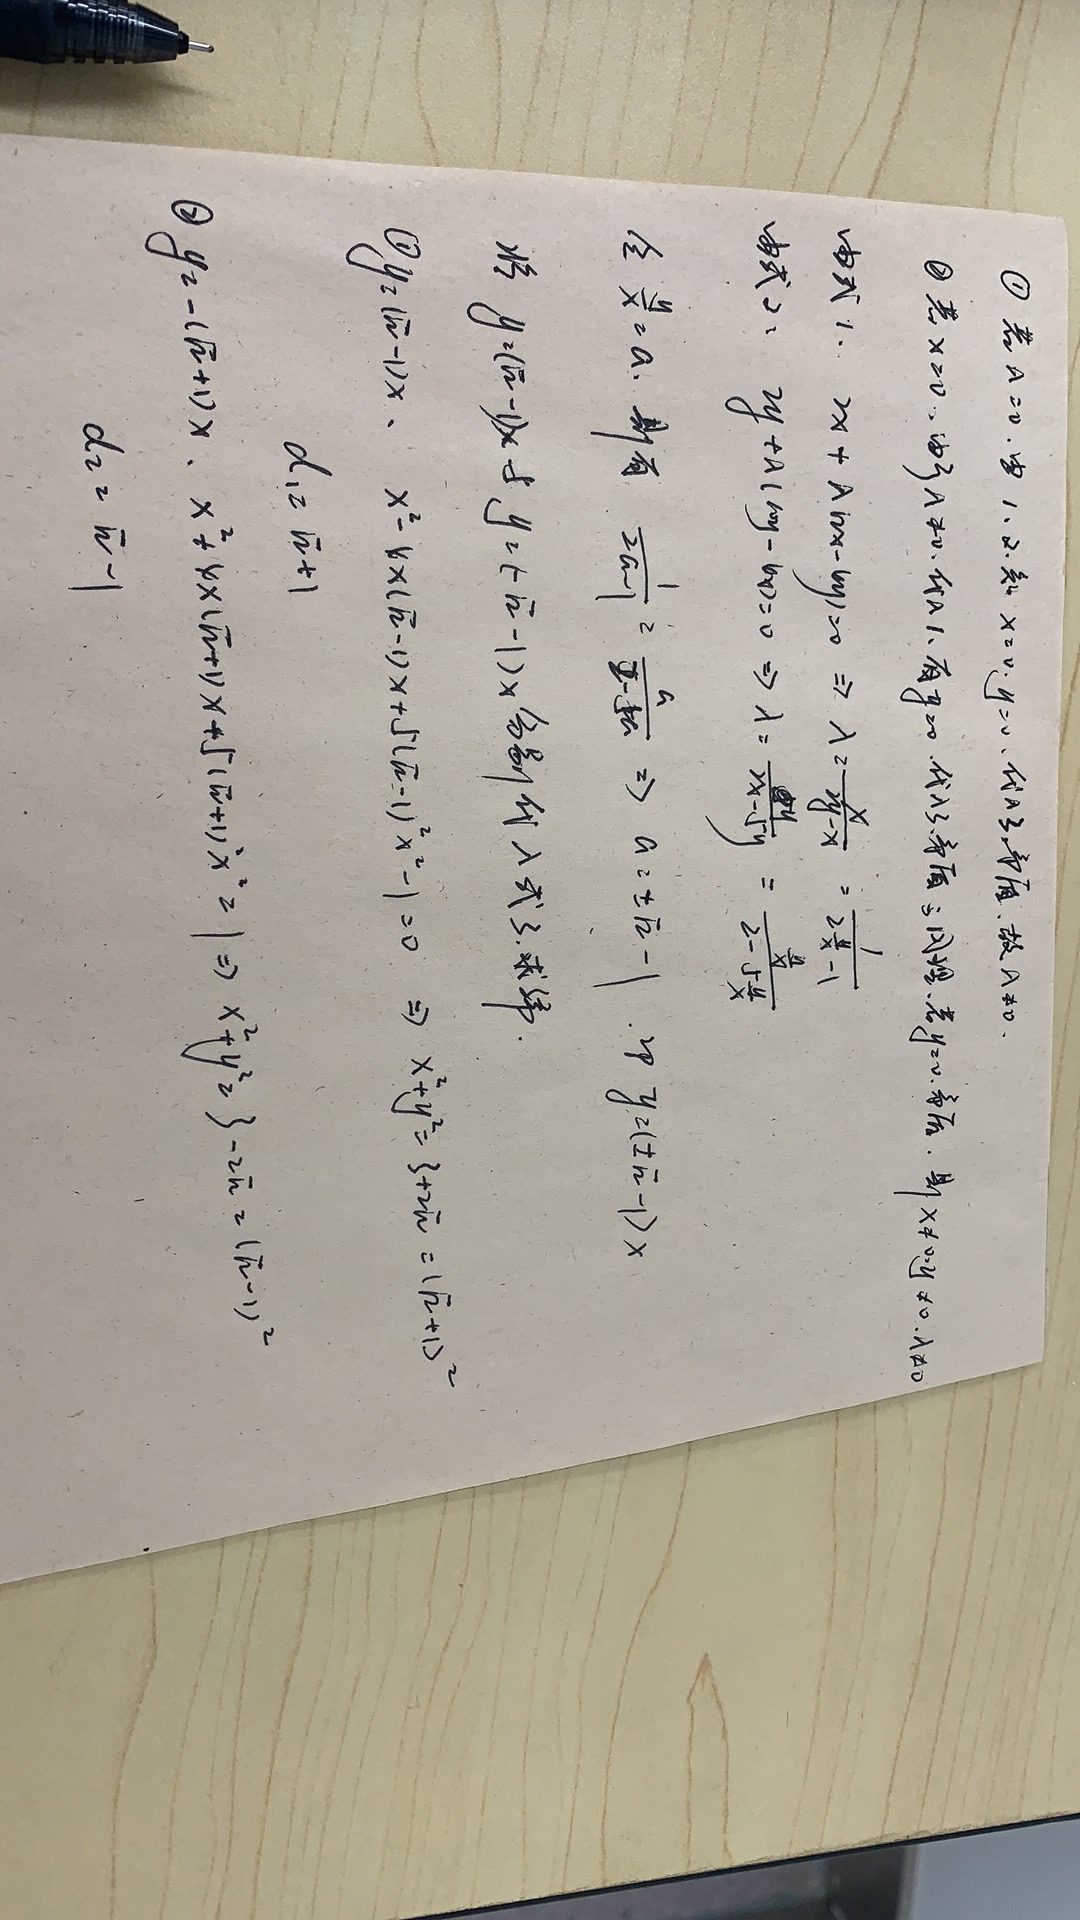 ① 若λ=0.由1、2.知 x=0.y=0、代入3,矛盾、故λ≠0.
② 若x=0、由于λ≠0.代入1、有y=0.代入3.矛盾;同理.若y=0.矛盾.则x≠0.y≠0.λ≠0
由式1. 2x+λ(2x-4y)=0 ⇒ λ=x/(2y-x) = 1/(2y/x-1)
由式2、 2y+λ(10y-4x)=0 ⇒ λ=y/(2x-5y) = (y/x)/(2-5y/x)
令 y/x=a、则有 1/(2a-1) = a/(2-5a) ⇒ a=±√2-1.即 y=(±√2-1)x
将 y=(√2-1)x与y=(-√2-1)x分别代入式3.求得.
① y=(√2-1)x、 x²-4x(√2-1)x+5(√2-1)²x²-1=0 ⇒ x²+y²=3+2√2=(√2+1)²
d₁=√2+1
② y=-(√2+1)x、x²+4x(√2+1)x+5(√2+1)²x²=1 ⇒ x²+y²=3-2√2=(√2-1)²
d₂=√2-1